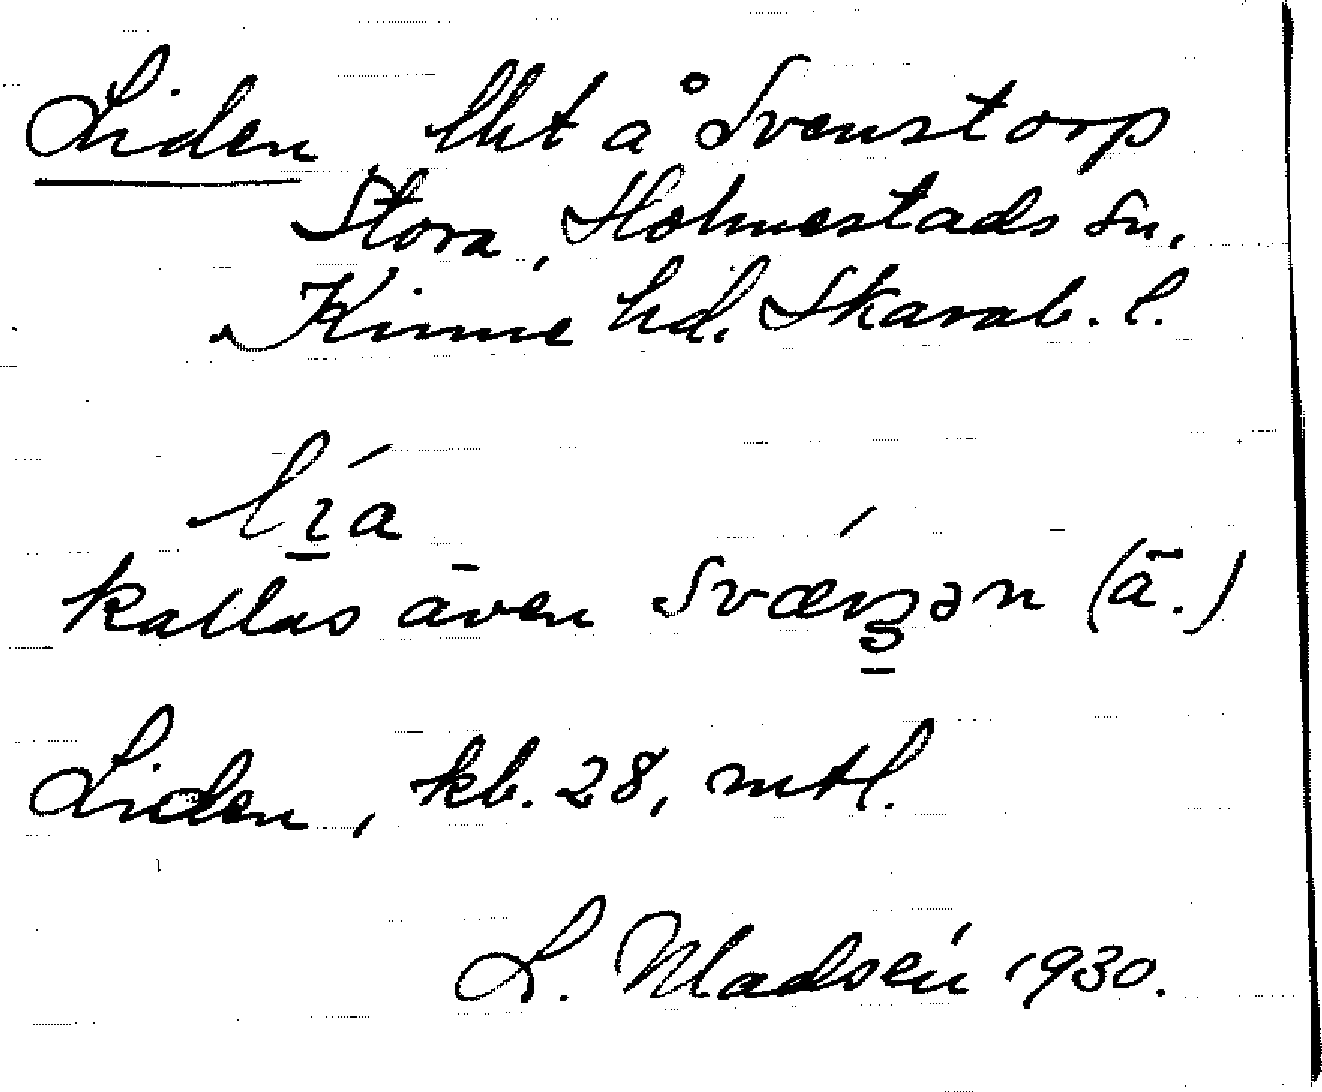 Liden lht å Svenstorp
Stora, Holmestads sn,
Kinne hd. Skarab. l.
lı̱́a
kallas även (ä.)
Liden, kb. 28, mtl.
L. Madsén 1930.